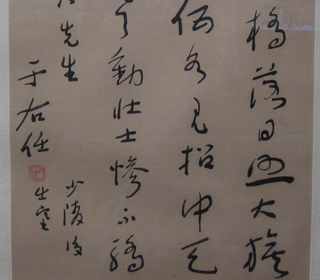 橋落日照大旗
伍各見招中天
動壯士慘不驕
少陵後
出塞
先生
于右任